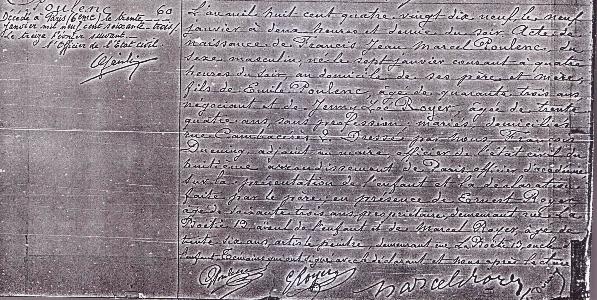 Poulenc 60
Décédé à Paris (6eme) le trente
janvier mil neuf cent soixante trois
Le treize Février suivant.
L'Officier de l'Etat civil
L'an mil huit cent quatre vingt dix neuf le neuf
janvier à deux heures et demie du soir. Acte de
naissance de Francis Jean Marcel Poulenc, de
sexe masculin, né le sept janvier courant à quatre
heures du soir, au domicile de ses père et mère,
fils de Emile Poulenc, âgé de quarante trois ans
négociant et de Jenny Royer, âgée de trente
quatre ans, sans profession, mariés, domiciliés
rue Cambacérès 2. Dressé par nous
adjoint au maire, officier de l'état civil du
huitième arrondissement de Paris, officier d'académie
sur la présentation de l'enfant et la déclaration
faite par le père, en présence de Ernest Royer
âgé de soixante trois ans, propriétaire, demeurant rue La
Boétie 12, aïeul de l'enfant et de Marcel Royer, âgé de
trente six ans, artiste peintre, demeurant rue La Boétie 12, oncle de
l'enfant. témoins qui ont signé avec le déclarant et nous après lecture
Poulenc E Royer Marcel Royer